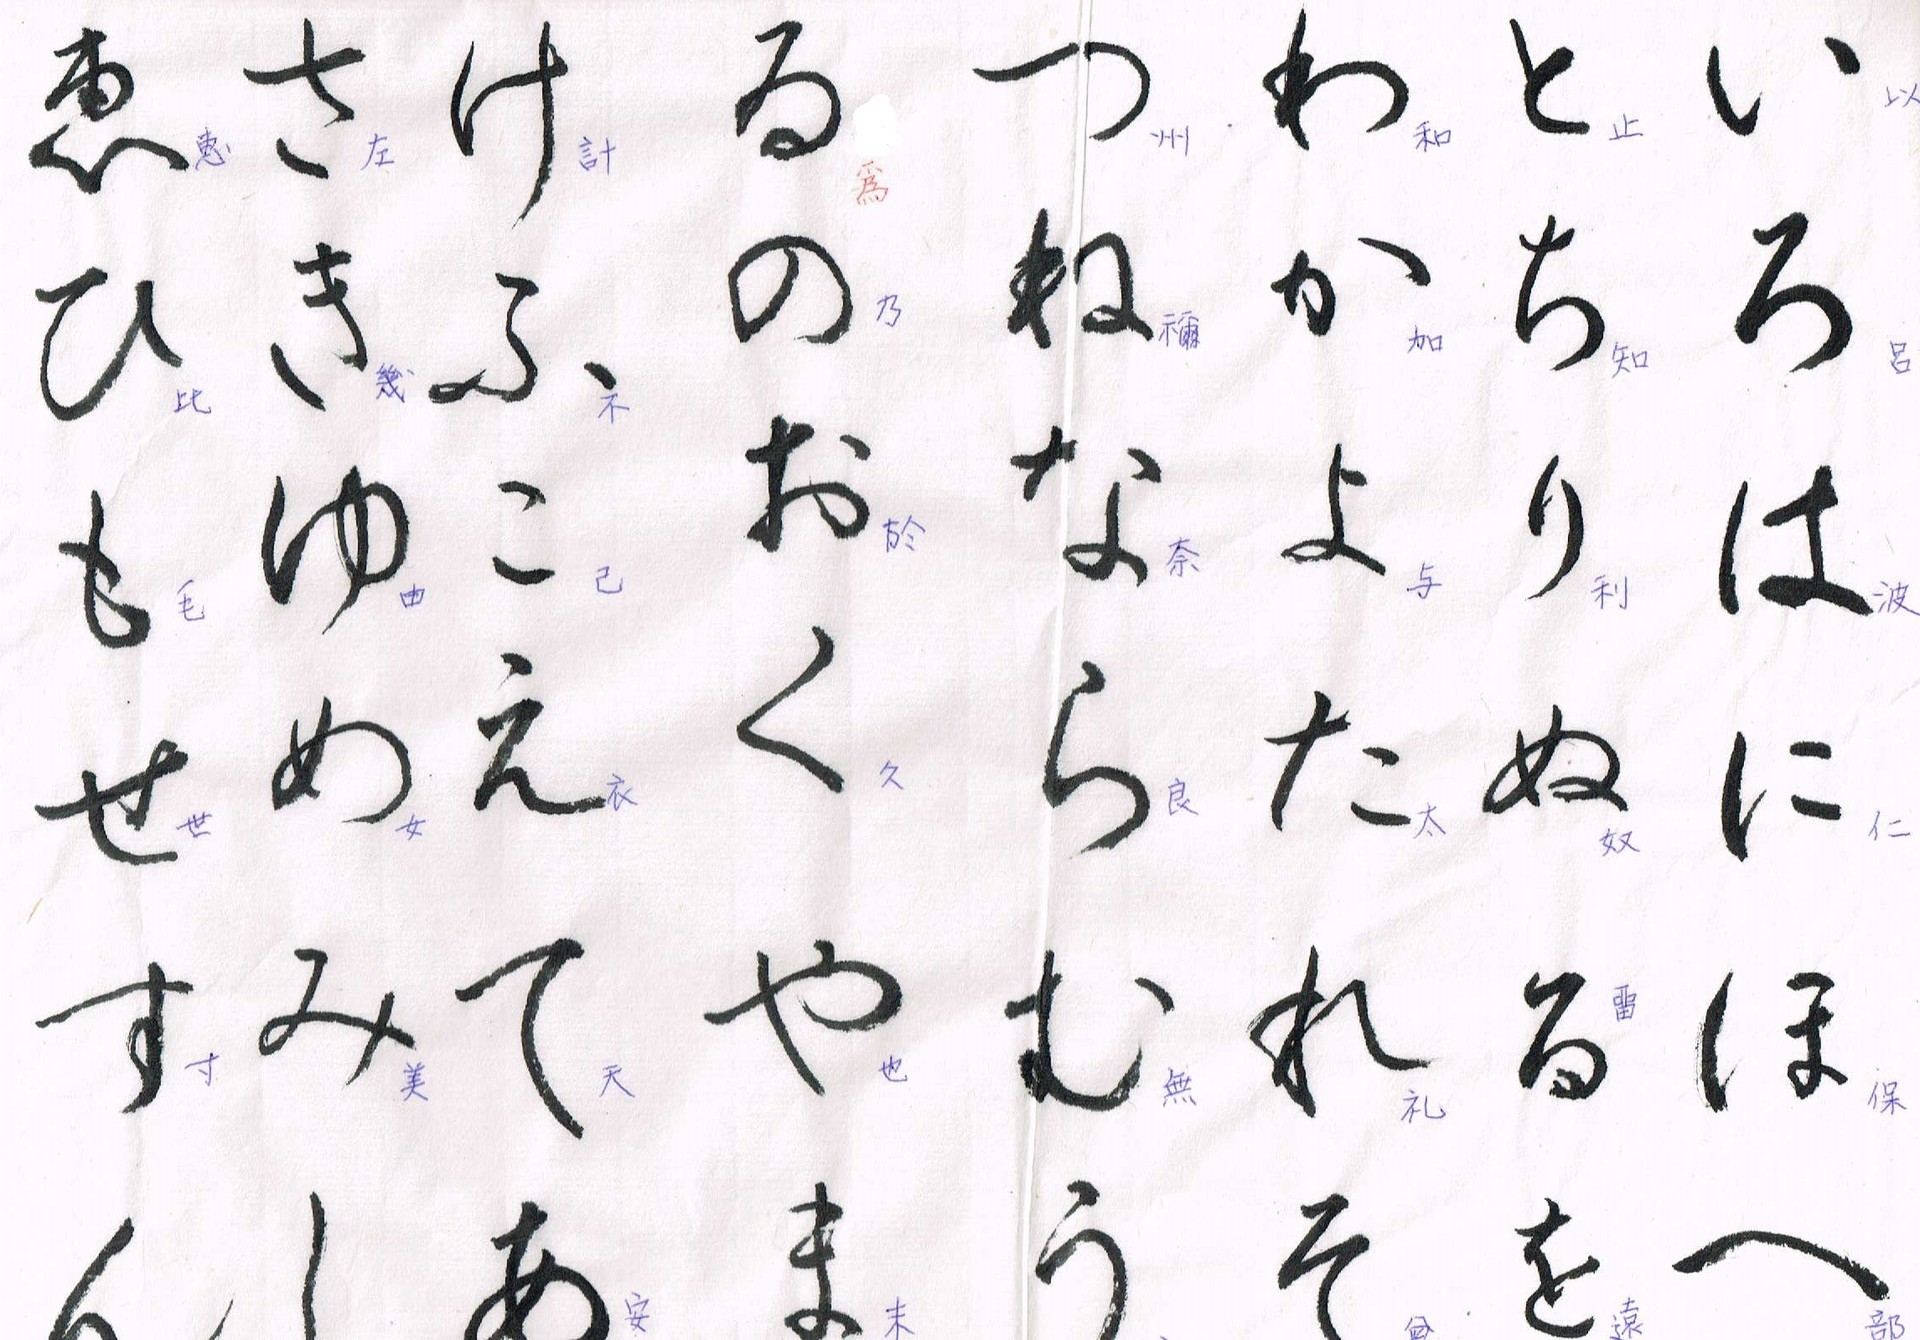 いろはにほへ
以呂波仁保部
とちりぬるを
止知利奴留遠
わかよたれそ
和加与太礼曽
つねならむう
州禰奈良無
ゐのおくやま
爲乃於久也末
けふこえてあ
計不己衣天安
さきゆめみし
左幾由女美
ゑひもせすん
惠比毛世寸